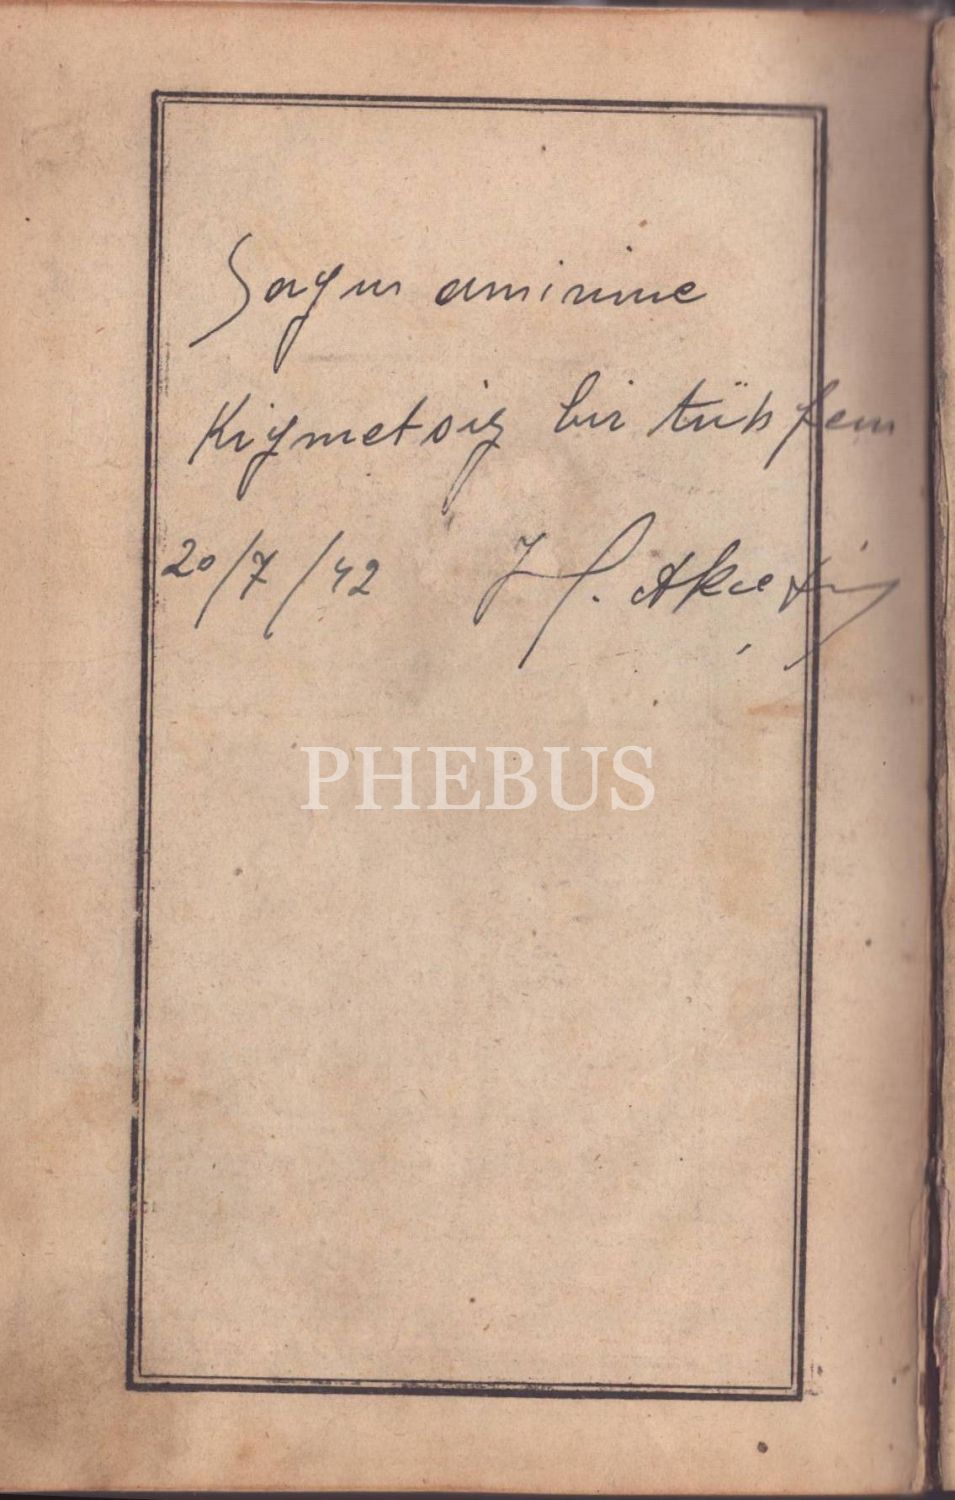 Sayın amirime
Kiymetsiz bir tühfem
20/7/42 H. Akçe
PHEBUS